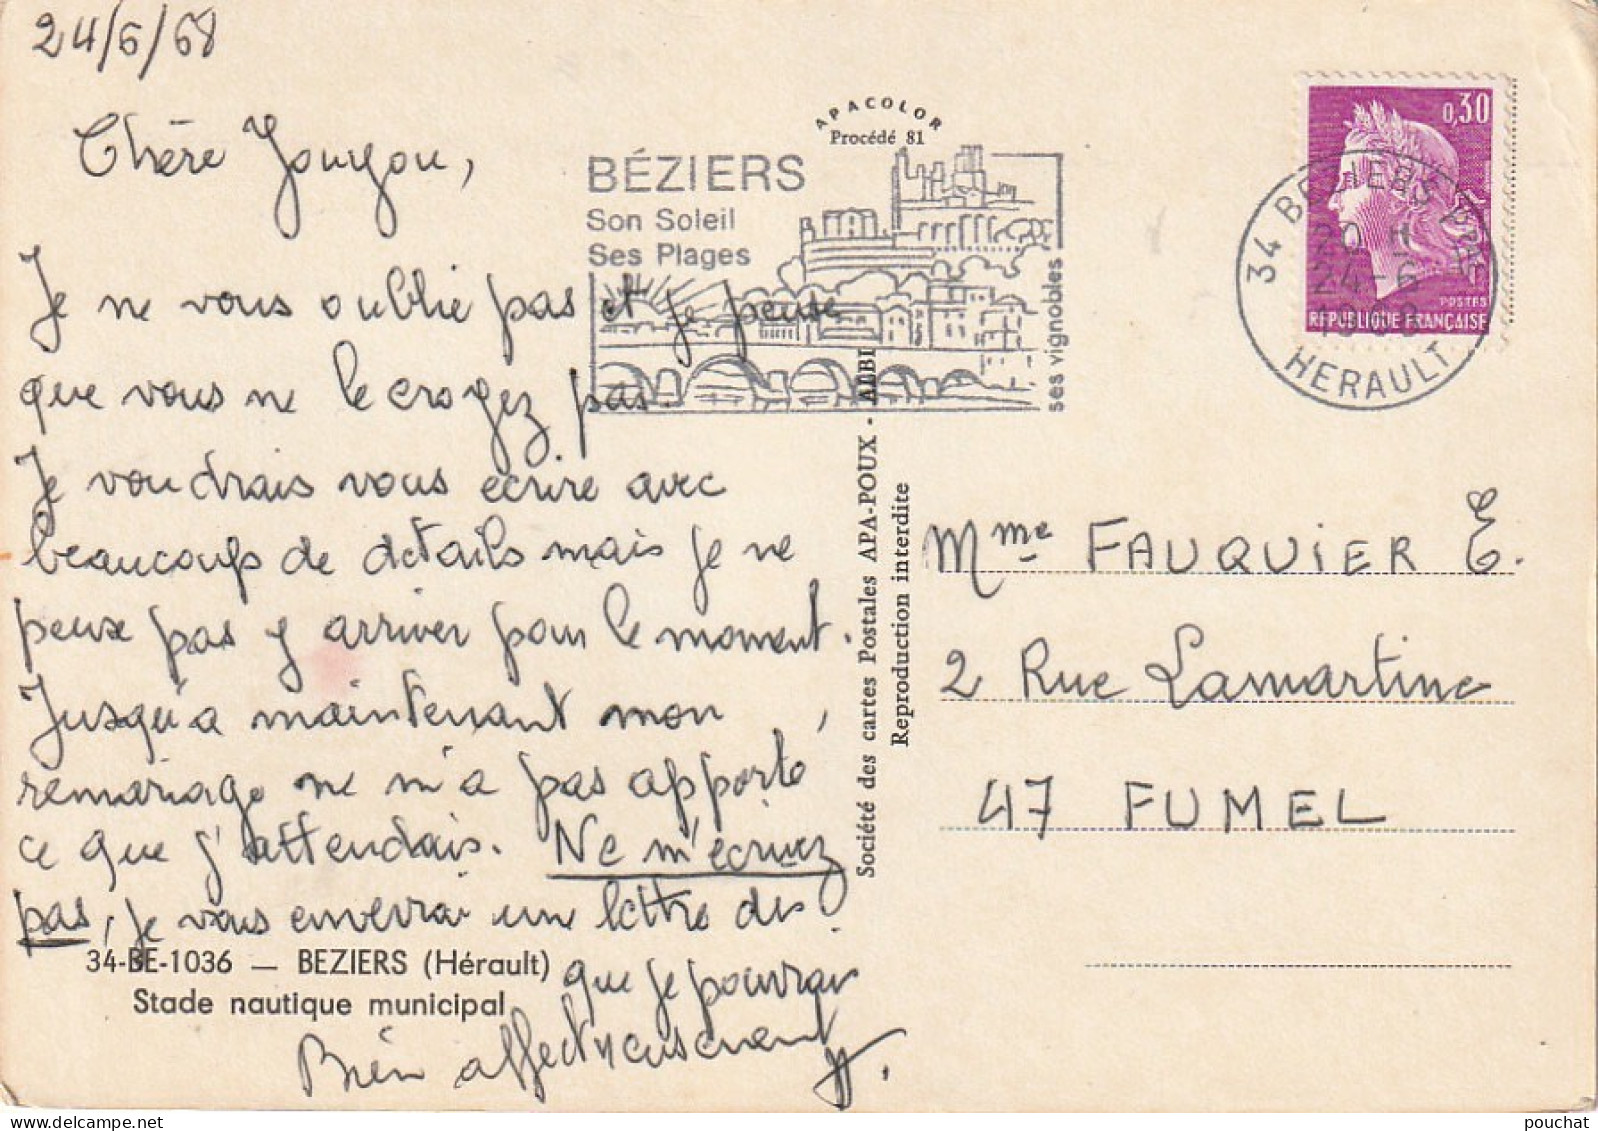 24/6/68
Chère Youyou,
Je ne vous oublie pas et je pense
que vous ne le croyez pas.
Je voudrais vous écrire avec
beaucoup de détails mais je ne
peux pas y arriver pour le moment.
Jusqu'à maintenant mon
remariage ne m'a pas apporté
ce que j'attendais. Ne m'écrivez
pas, je vous enverrai un lettre dès
que je pourrai
Bien affectueusement
34-BE-1036 — BEZIERS (Hérault)
Stade nautique municipal
APACOLOR
Procédé 81
BÉZIERS
Son Soleil
Ses Plages
ses vignobles
Société des cartes Postales APA-POUX - ALBI
Reproduction interdite
0,30
POSTES
REPUBLIQUE FRANÇAISE
34 BEZIERS
20 H
24-6
HERAULT
Mme FAUQUIER E.
2 Rue Lamartine
47 FUMEL
pouchat